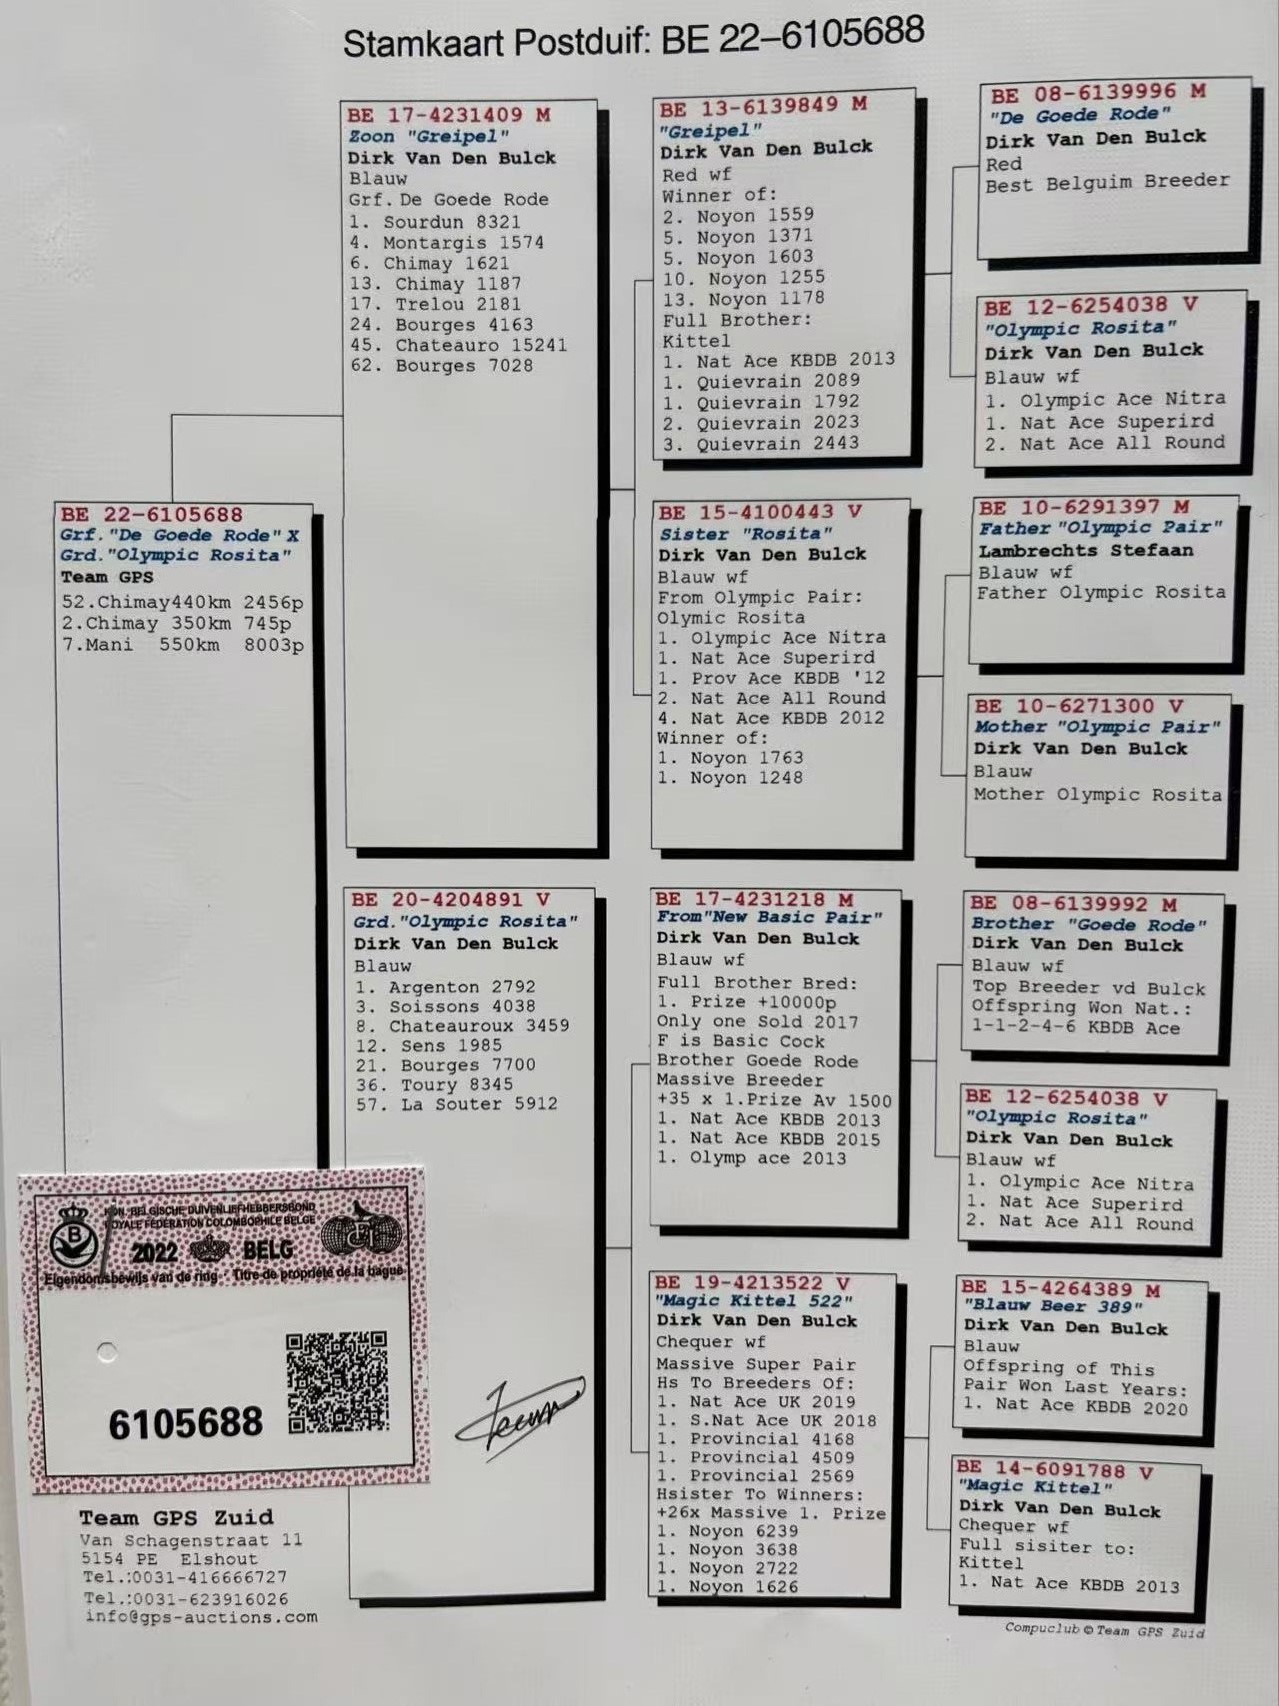 Stamkaart Postduif: BE 22-6105688
BE 22-6105688
Grf."De Goede Rode" X
Grd."Olympic Rosita"
Team GPS
52.Chimay440km 2456p
2.Chimay 350km 745p
7.Mani 550km 8003p
BE 17-4231409 M
Zoon "Greipel"
Dirk Van Den Bulck
Blauw
Grf. De Goede Rode
1. Sourdun 8321
4. Montargis 1574
6. Chimay 1621
13. Chimay 1187
17. Trelou 2181
24. Bourges 4163
45. Chateauro 15241
62. Bourges 7028
BE 20-4204891 V
Grd."Olympic Rosita"
Dirk Van Den Bulck
Blauw
1. Argenton 2792
3. Soissons 4038
8. Chateauroux 3459
12. Sens 1985
21. Bourges 7700
36. Toury 8345
57. La Souter 5912
BE 13-6139849 M
"Greipel"
Dirk Van Den Bulck
Red wf
Winner of:
2. Noyon 1559
5. Noyon 1371
5. Noyon 1603
10. Noyon 1255
13. Noyon 1178
Full Brother:
Kittel
1. Nat Ace KBDB 2013
1. Quievrain 2089
1. Quievrain 1792
2. Quievrain 2023
3. Quievrain 2443
BE 15-4100443 V
Sister "Rosita"
Dirk Van Den Bulck
Blauw wf
From Olympic Pair:
Olymic Rosita
1. Olympic Ace Nitra
1. Nat Ace Superird
1. Prov Ace KBDB '12
2. Nat Ace All Round
4. Nat Ace KBDB 2012
Winner of:
1. Noyon 1763
1. Noyon 1248
BE 17-4231218 M
From"New Basic Pair"
Dirk Van Den Bulck
Blauw wf
Full Brother Bred:
1. Prize +10000p
Only one Sold 2017
F is Basic Cock
Brother Goede Rode
Massive Breeder
+35 x 1.Prize Av 1500
1. Nat Ace KBDB 2013
1. Nat Ace KBDB 2015
1. Olymp ace 2013
BE 19-4213522 V
"Magic Kittel 522"
Dirk Van Den Bulck
Chequer wf
Massive Super Pair
Hs To Breeders Of:
1. Nat Ace UK 2019
1. S.Nat Ace UK 2018
1. Provincial 4168
1. Provincial 4509
1. Provincial 2569
Hsister To Winners:
+26x Massive 1. Prize
1. Noyon 6239
1. Noyon 3638
1. Noyon 2722
1. Noyon 1626
BE 08-6139996 M
"De Goede Rode"
Dirk Van Den Bulck
Red
Best Belguim Breeder
BE 12-6254038 V
"Olympic Rosita"
Dirk Van Den Bulck
Blauw wf
1. Olympic Ace Nitra
1. Nat Ace Superird
2. Nat Ace All Round
BE 10-6291397 M
Father "Olympic Pair"
Lambrechts Stefaan
Blauw wf
Father Olympic Rosita
BE 10-6271300 V
Mother "Olympic Pair"
Dirk Van Den Bulck
Blauw
Mother Olympic Rosita
BE 08-6139992 M
Brother "Goede Rode"
Dirk Van Den Bulck
Blauw wf
Top Breeder vd Bulck
Offspring Won Nat.:
1-1-2-4-6 KBDB Ace
BE 12-6254038 V
"Olympic Rosita"
Dirk Van Den Bulck
Blauw wf
1. Olympic Ace Nitra
1. Nat Ace Superird
2. Nat Ace All Round
BE 15-4264389 M
"Blauw Beer 389"
Dirk Van Den Bulck
Blauw
Offspring of This
Pair Won Last Years:
1. Nat Ace KBDB 2020
BE 14-6091788 V
"Magic Kittel"
Dirk Van Den Bulck
Chequer wf
Full sisiter to:
Kittel
1. Nat Ace KBDB 2013
KON. BELGISCHE DUIVENLIEFHEBBERSBOND
ROYALE FEDERATION COLOMBOPHILE BELGE
B
2022 BELG
Eigendomsbewijs van de ring - Titre de propriété de la bague
6105688
Team GPS Zuid
Van Schagenstraat 11
5154 PE Elshout
Tel.:0031-416666727
Tel.:0031-623916026
info@gps-auctions.com
Compuclub © Team GPS Zuid